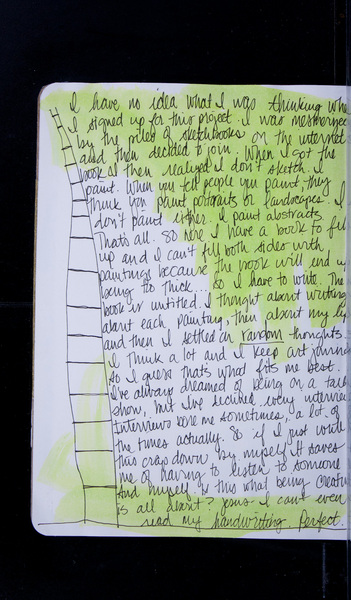 I have no idea what I was thinking when
I signed up for this project. I was mesmerized
by the piles of sketchbooks on the internet
and then decided to join. When I got the
book I then realized I don't sketch. I
paint. When you tell people you paint, they
think you paint portraits or landscapes. I
don't paint either. I paint abstracts.
Thats all. So here I have a book to fill
up and I can't fill both sides with
paintings because the book will end up
being too thick... so I have to write. The
book is untitled. I thought about writing
about each painting, then about my life
and then I settled on random thoughts.
I think a lot and I keep art journals
so I guess thats what fits me best.
I've always dreamed of being on a talk
show, but I've declined every interview.
Interviews bore me sometimes, a lot of
the times actually. So if I just write
this crap down by myself it saves
me of having to listen to someone
and myself. Is this what being creative
is all about? Jesus I cant even
read my handwriting. Perfect.